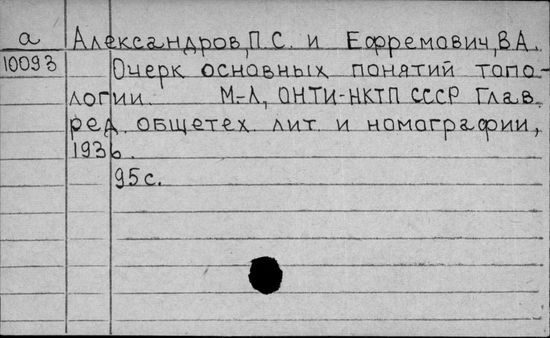 а Александров, П.С. и Ефремович, В.А.
10093 Очерк основных понятий топо-
логии. М-Л, ОНТИ-НКТП СССР Глав.
ред. общетех. лит. и номографии,
1936.
95 с.